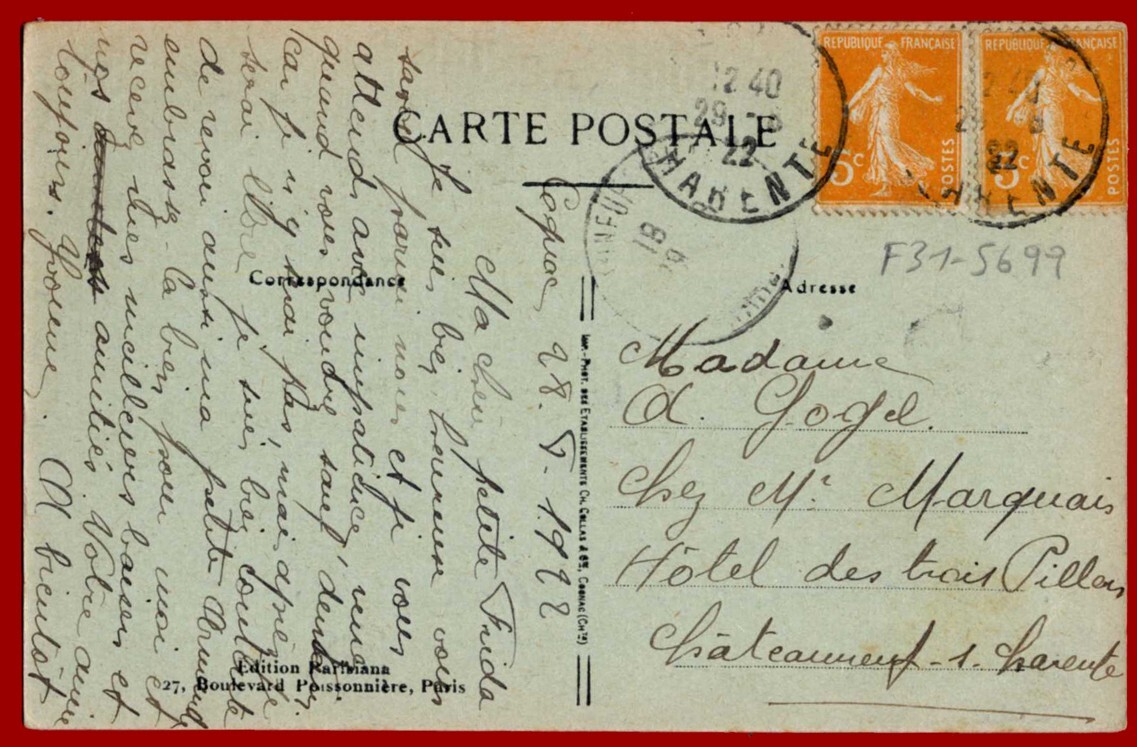 CARTE POSTALE
REPUBLIQUE FRANÇAISE
5c POSTES
REPUBLIQUE FRANÇAISE
5c POSTES
12 40
29 - 8
22
CHARENTE
12 40
22
CHARENTE
18
F31-5699
Correspondance
Adresse
Cognac 28. 8. 1922
Ma chère petite Frida
Je suis bien heureuse vous
savoir parmi nous et je vous
attends avec impatience, venez
quand vous voudrez sauf
car je n'y serai pas, mais après je
serai libre je suis bien contente
de revoir aussi ma petite
embrassez-la bien pour moi et
recevez mes meilleurs baisers et
nos amitiés. Votre amie
toujours. Yvonne. A bientôt
IMP.-PHOT. DES ETABLISSEMENTS CH. COLLAS & Cie, COGNAC (Chte)
Madame
A. Gogel.
Chez Mr Marquais
Hôtel des trois Pilliers
Châteauneuf-s. Charente
Edition Parisiana
27, Boulevard Poissonnière, Paris